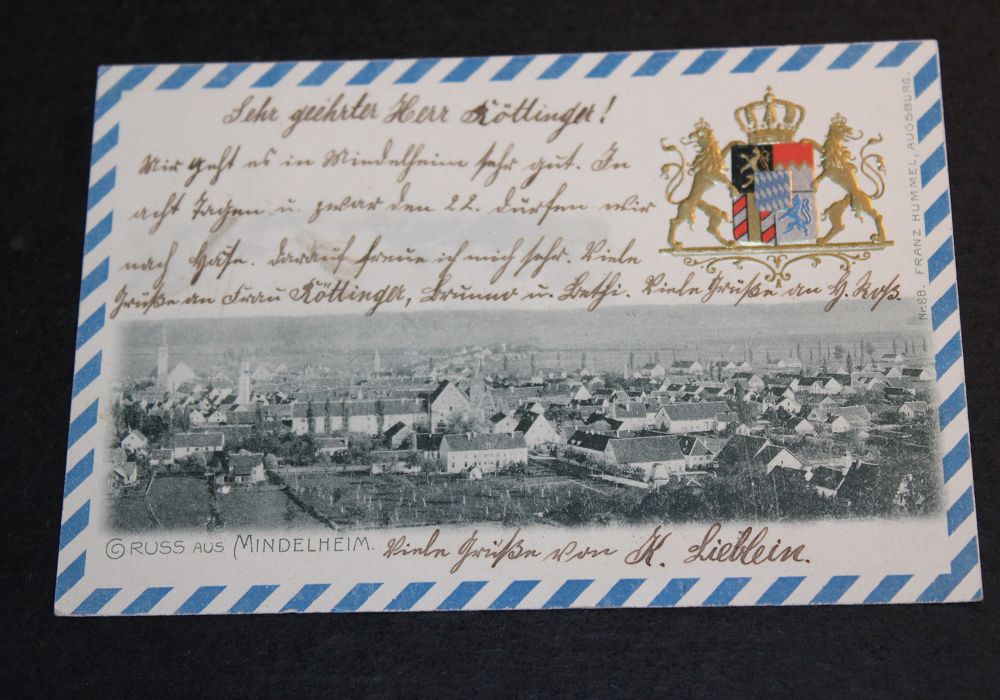 Sehr geehrter Herr Röttinger!
Mir geht es in Mindelheim sehr gut. In
acht Tagen u. zwar den 22. dürfen wir
nach Hause. darauf freue ich mich sehr. Viele
Grüße an Frau Röttinger, Brunno u. Bethi. Viele Grüße an H. Roß.
Nr. 88. FRANZ HUMMEL, AUGSBURG.
GRUSS AUS MINDELHEIM.
Viele Grüße von K. Lieblein.